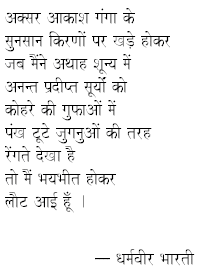 अक्सर आकाश गंगा के
सुनसान किरणों पर खड़े होकर
जब मैंने अथाह शून्य में
अनन्त प्रदीप्त सूर्यों को
कोहरे की गुफाओं में
पंख टूटे जुगनुओं की तरह
रेंगते देखा है
तो मैं भयभीत होकर
लौट आई हूँ ।
— धर्मवीर भारती